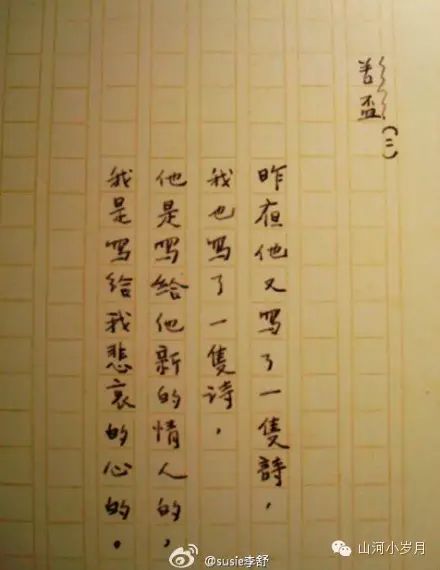 苦盃(二)
昨夜他又写了一隻詩，
我也写了一隻詩，
他是写給他新的情人的，
我是写給我悲哀的心的。
@susie李舒
山河小岁月